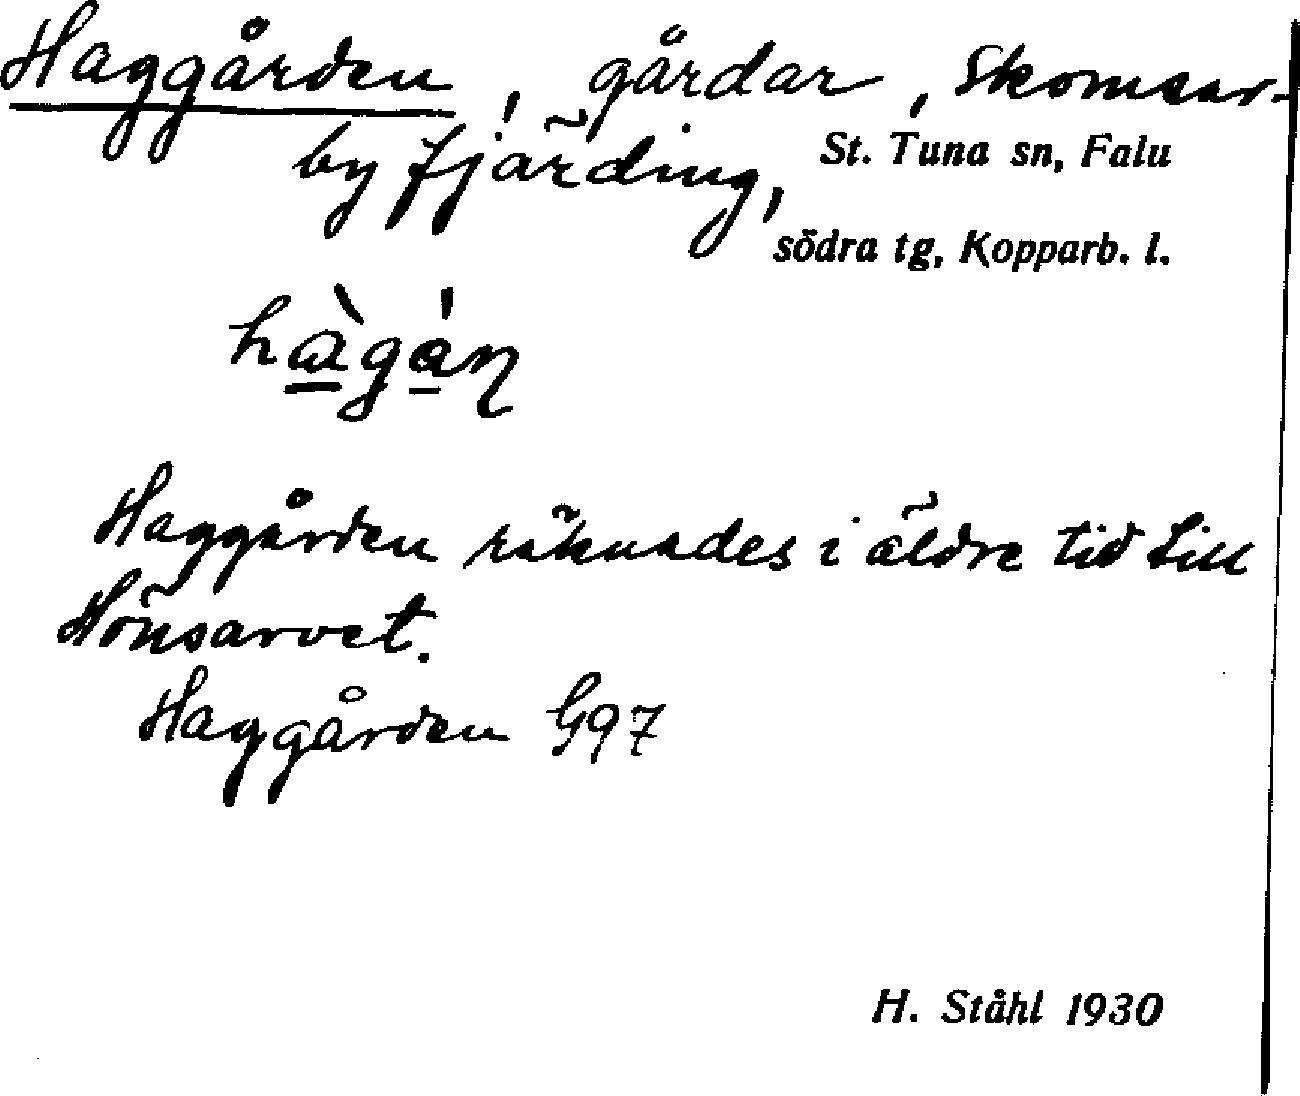 Haggården, gårdar, Skomsar-
by fjärding, St. Tuna sn, Falu
södra tg, Kopparb. l.
hàgán
Haggården räknades i äldre tid till
Hönsarvet.
Haggården G97
H. Ståhl 1930